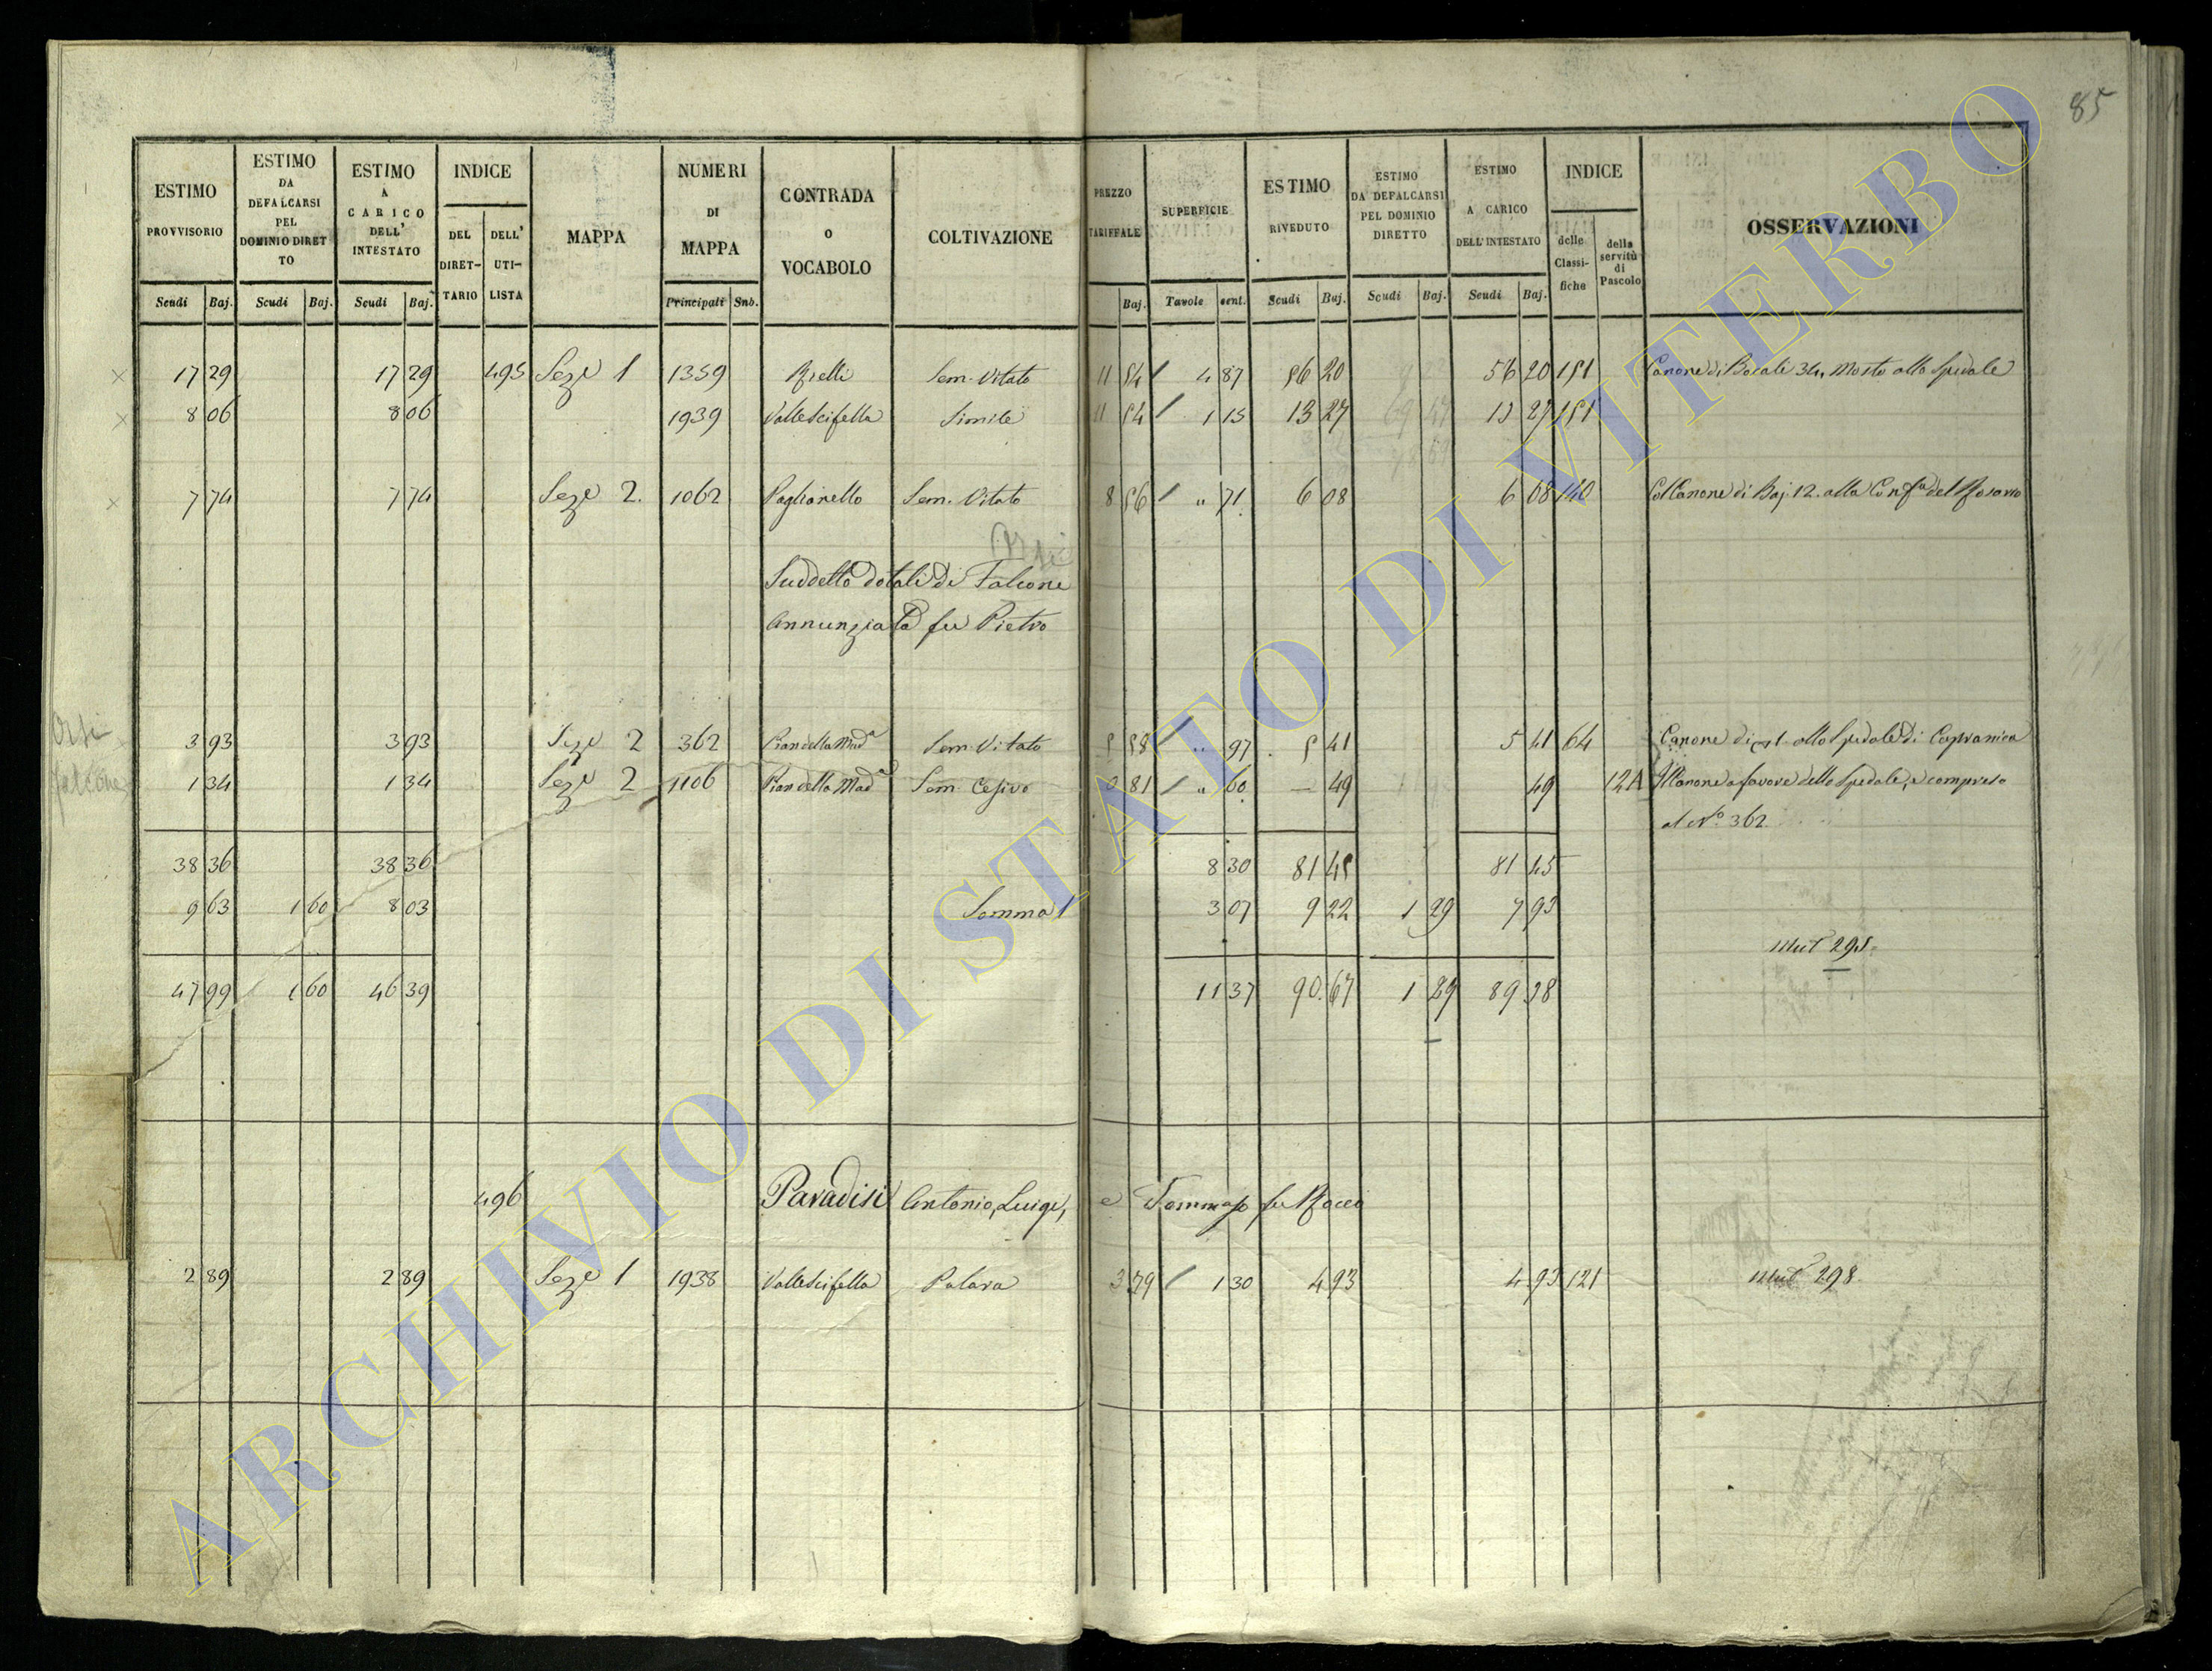 85
ESTIMO PROVVISORIO Scudi Baj.
ESTIMO DA DEFALCARSI PEL DOMINIO DIRET TO Scudi Baj.
ESTIMO A CARICO DELL' INTESTATO Scudi Baj.
INDICE DEL DIRET- TARIO DELL' UTI- LISTA
MAPPA
NUMERI DI MAPPA Principali Sub.
CONTRADA O VOCABOLO
COLTIVAZIONE
PREZZO TARIFFALE Baj.
SUPERFICIE Tavole cent.
ESTIMO RIVEDUTO Scudi Baj.
ESTIMO DA DEFALCARSI PEL DOMINIO DIRETTO Scudi Baj.
ESTIMO A CARICO DELL' INTESTATO Scudi Baj.
INDICE delle Classi- fiche della servitù di Pascolo
OSSERVAZIONI
17 29 17 29 495 Seze 1 1359 Rielli Sem. Vitato 11 54 4 87 56 20 56 20 151 Canone di Bocali 34 Mosto allo Spedale
8 06 8 06 1939 Vallescifella Simile 11 54 1 15 13 27 13 27 151
7 74 7 74 Seze 2. 1062 Paglianello Sem. Vitato 8 56 " 71 6 08 6 08 140 Col Canone di Baj. 12. alla Confa del Rosario
Orsi
Suddetto dotali di Falcone
Annunziata fu Pietro
Orsi
Falcone
3 93 3 93 Seze 2 362 Pian della Mada Sem. Vitato 5 58 " 97 5 41 5 41 64 Canone di 1 allo Spedale di Capranica
1 34 1 34 Seze 2 1106 Pian della Mada Sem. Cesivo 0 81 " 60 — 49 49 12A Il Canone a favore dello Spedale, è compreso
al No. 362
38 36 38 36 8 30 81 45 81 45
9 63 1 60 8 03 Somma 1 3 07 9 22 1 29 7 93
Mut 295
47 99 1 60 46 39 11 37 90 67 1 29 89 38
496 Paradisi Antonio, Luigi, e Tommaso fu Rocco
2 89 2 89 Seze 1 1938 Vallescifella Palara 3 79 1 30 4 93 4 93 121 Mut 298
ARCHIVIO DI STATO DI VITERBO